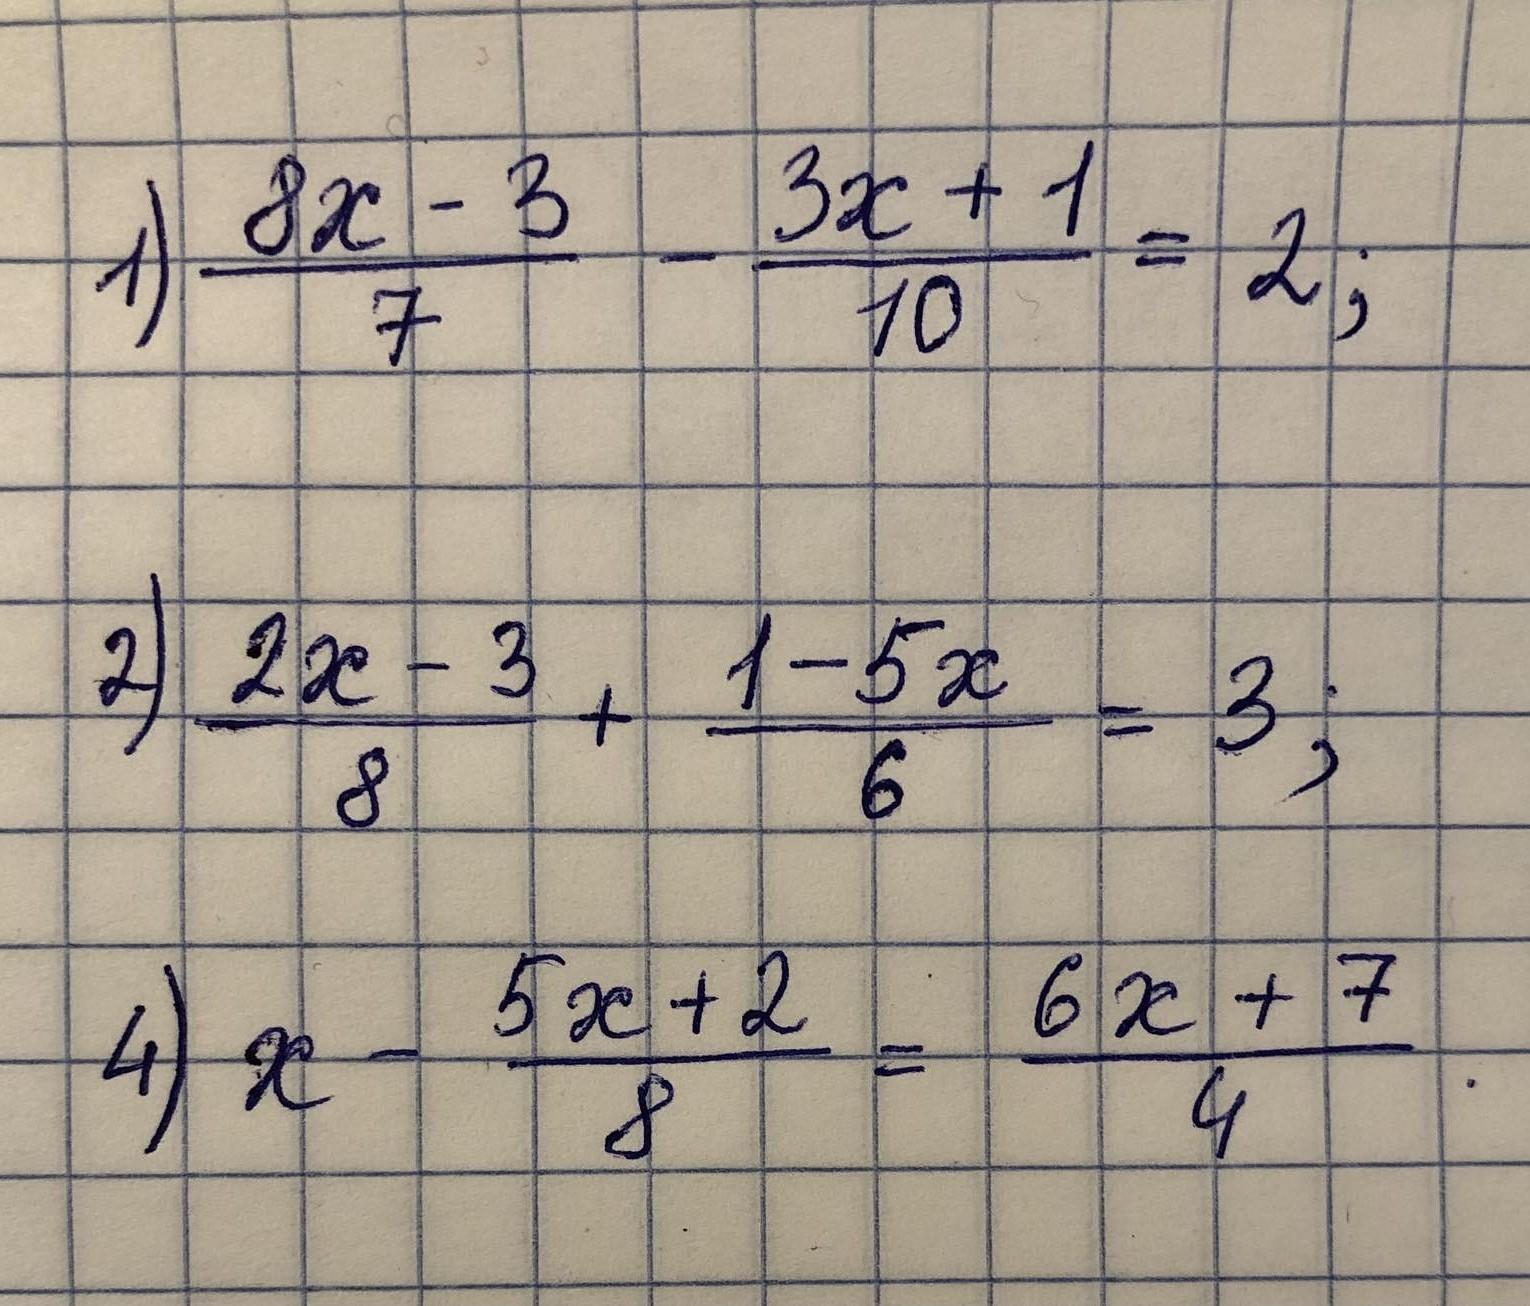 1) \frac{8x - 3}{7} - \frac{3x + 1}{10} = 2;
2) \frac{2x - 3}{8} + \frac{1 - 5x}{6} = 3;
4) x - \frac{5x + 2}{8} = \frac{6x + 7}{4}.